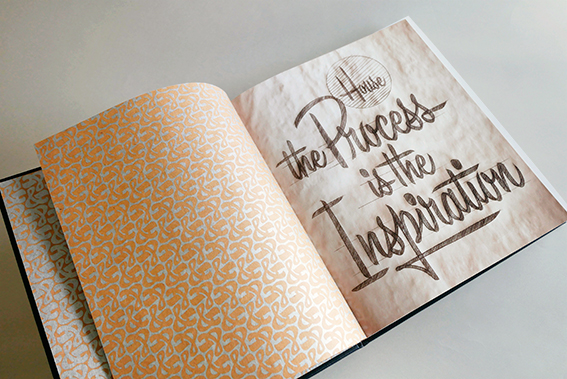 House
the Process
is the
Inspiration